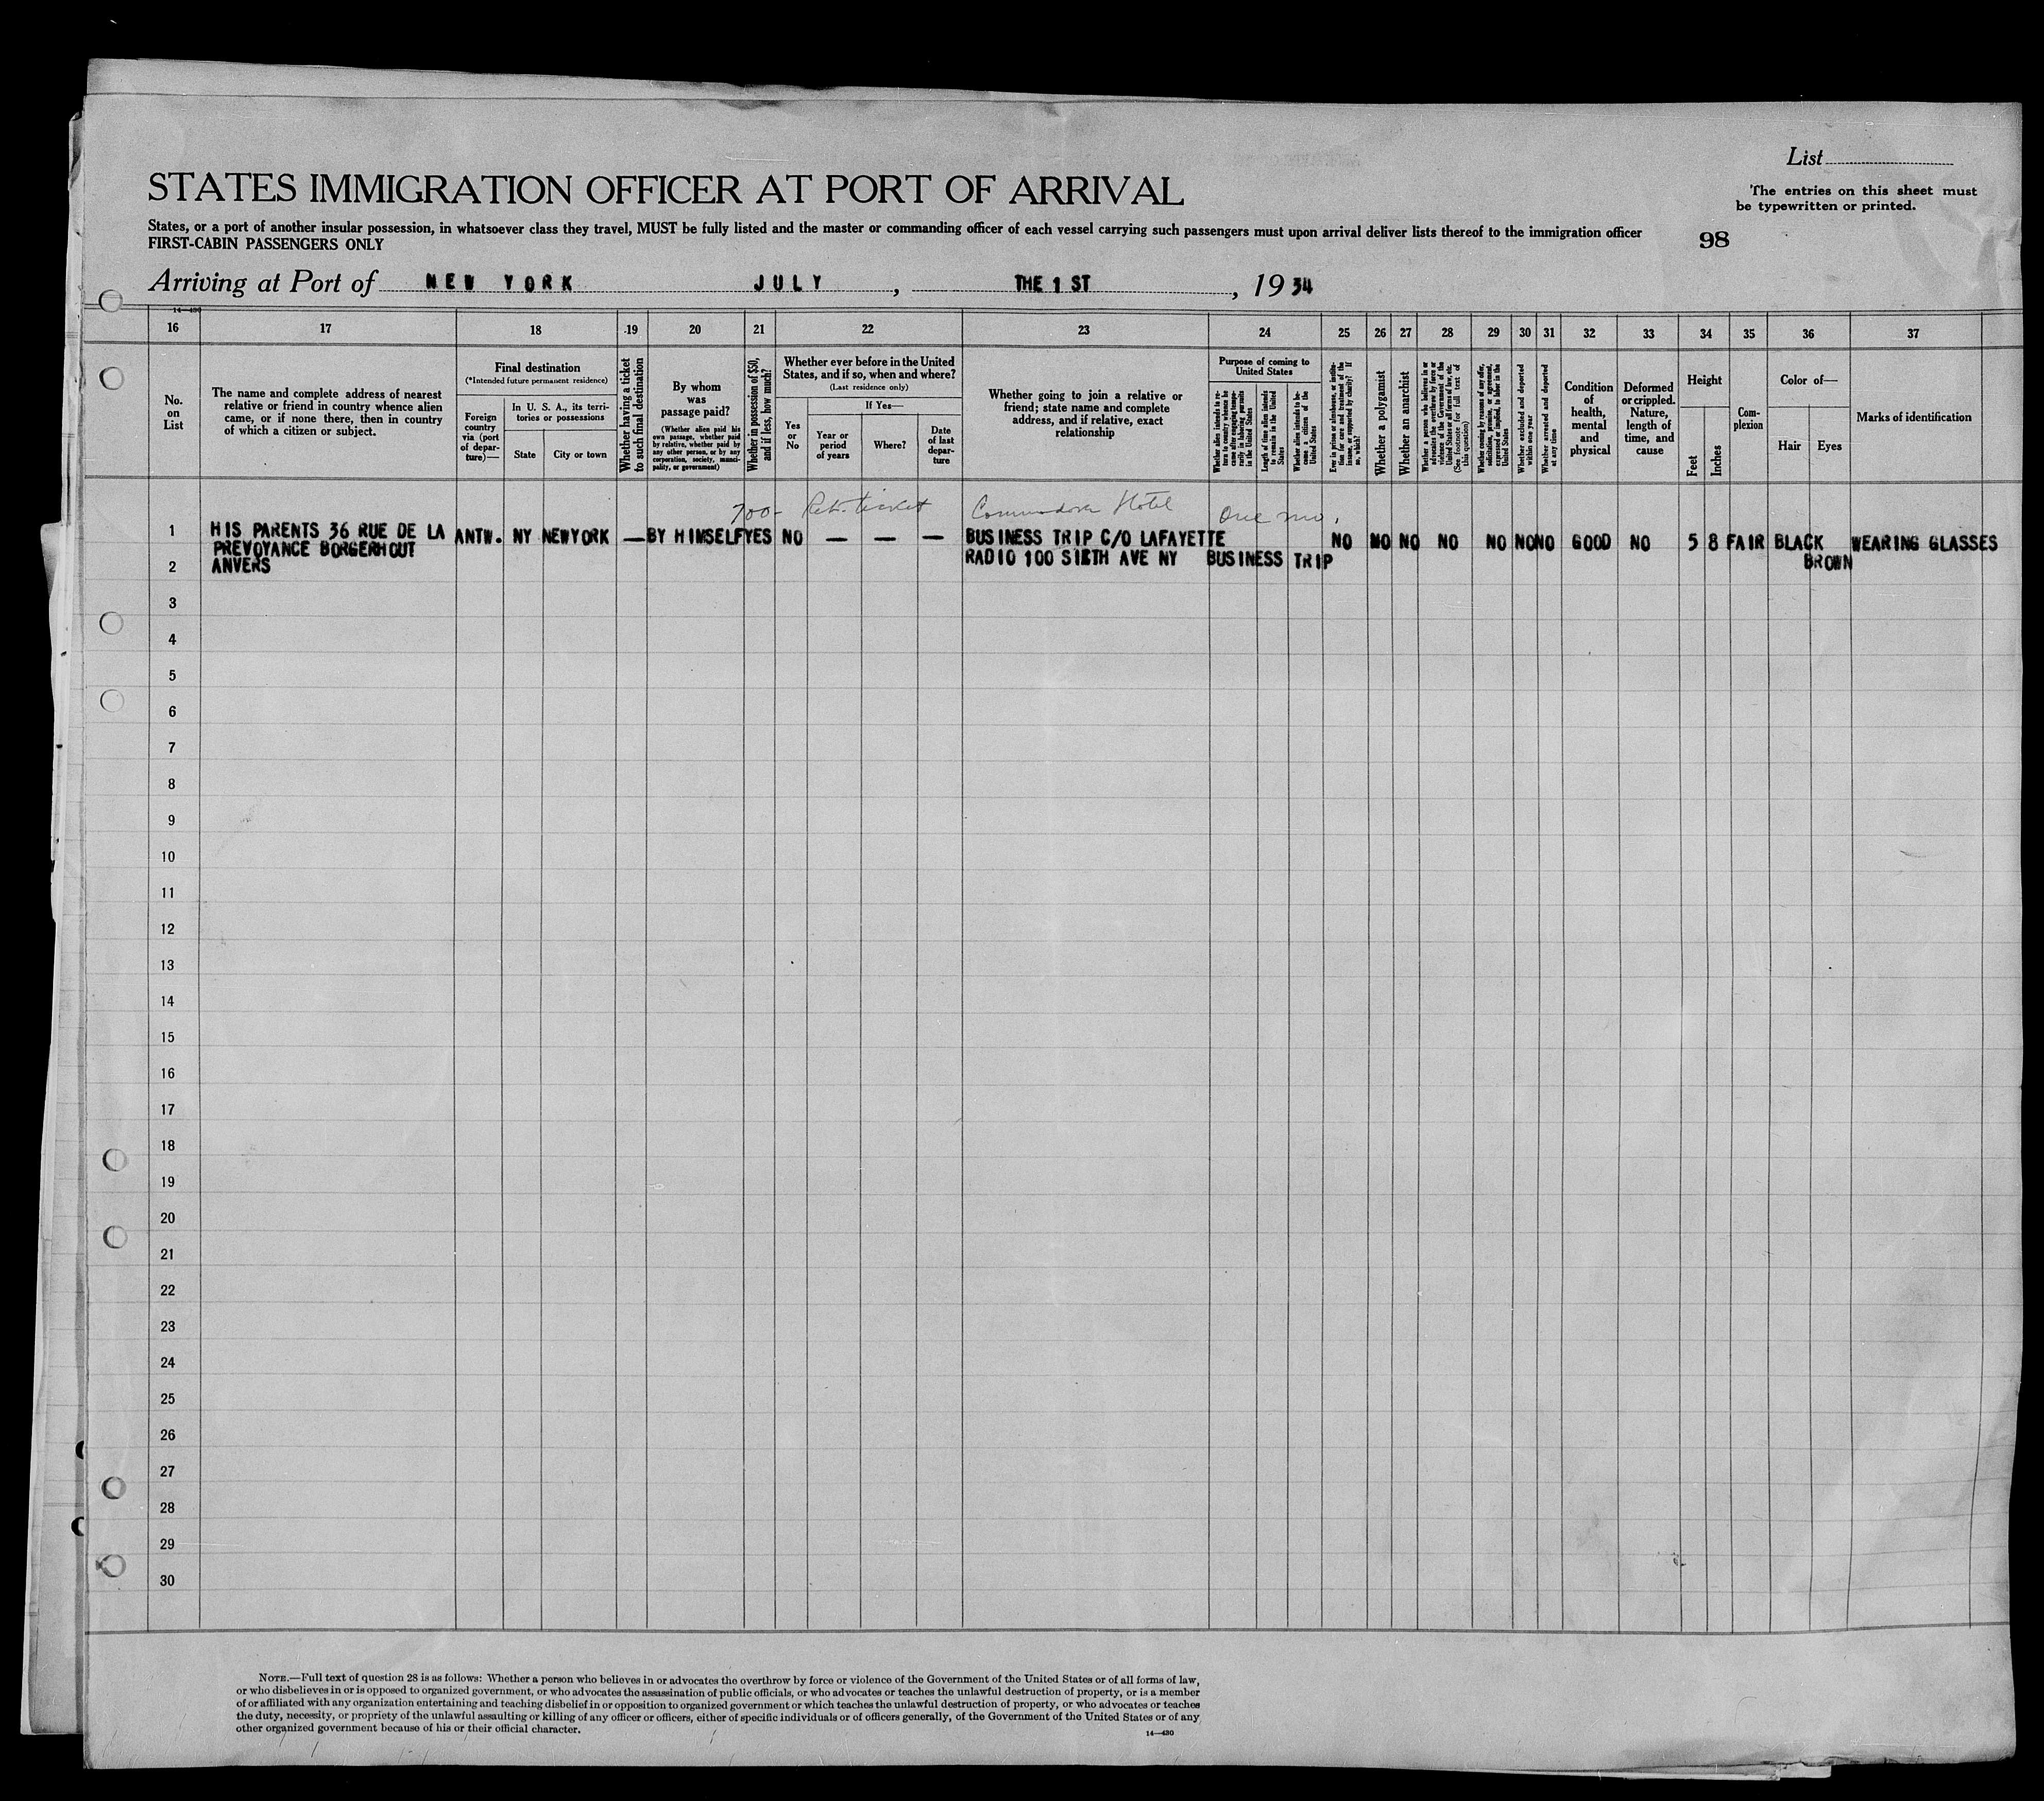 List
STATES IMMIGRATION OFFICER AT PORT OF ARRIVAL
The entries on this sheet must
be typewritten or printed.
States, or a port of another insular possession, in whatsoever class they travel, MUST be fully listed and the master or commanding officer of each vessel carrying such passengers must upon arrival deliver lists thereof to the immigration officer
FIRST-CABIN PASSENGERS ONLY
98
Arriving at Port of NEW YORK JULY , THE 1 ST , 19 34
14—430
16 17 18 19 20 21 22 23 24 25 26 27 28 29 30 31 32 33 34 35 36 37
No.
on
List
The name and complete address of nearest
relative or friend in country whence alien
came, or if none there, then in country
of which a citizen or subject.
Final destination
(*Intended future permanent residence)
Foreign
country
via (port
of depar-
ture)—
In U. S. A., its terri-
tories or possessions
State
City or town
Whether having a ticket
to such final destination
By whom
was
passage paid?
(Whether alien paid his
own passage, whether paid
by relative, whether paid by
any other person, or by any
corporation, society, munici-
pality, or government)
Whether in possession of $50,
and if less, how much?
Whether ever before in the United
States, and if so, when and where?
(Last residence only)
Yes
or
No
If Yes—
Year or
period
of years
Where?
Date
of last
depar-
ture
Whether going to join a relative or
friend; state name and complete
address, and if relative, exact
relationship
Purpose of coming to
United States
Whether alien intends to re-
turn to country whence he
came after engaging tempo-
rarily in laboring pursuits
in the United States
Length of time alien intends
to remain in the United
States
Whether alien intends to be-
come a citizen of the
United States
Ever in prison or almshouse, or institu-
tion for care and treatment of the
insane, or supported by charity? If
so, which?
Whether a polygamist
Whether an anarchist
Whether a person who believes in or
advocates the overthrow by force or
violence of the Government of the
United States or all forms of law, etc.
(See footnote for full text of
this question)
Whether coming by reasons of any offer,
solicitation, promise, or agreement,
expressed or implied, to labor in the
United States
Whether excluded and deported
within one year
Whether arrested and deported
at any time
Condition
of
health,
mental
and
physical
Deformed
or crippled.
Nature,
length of
time, and
cause
Height
Feet
Inches
Com-
plexion
Color of—
Hair
Eyes
Marks of identification
700- Ret. ticket Commodore Hotel One mo.
1 HIS PARENTS 36 RUE DE LA ANTW. NY NEWYORK — BY HIMSELF YES NO — — — BUSINESS TRIP C/O LAFAYETTE NO NO NO NO NO NO NO GOOD NO 5 8 FAIR BLACK WEARING GLASSES
PREVOYANCE BORGERHOUT RADIO 100 SIXTH AVE NY BUSINESS TRIP BROWN
2 ANVERS
3
4
5
6
7
8
9
10
11
12
13
14
15
16
17
18
19
20
21
22
23
24
25
26
27
28
29
30
NOTE.—Full text of question 28 is as follows: Whether a person who believes in or advocates the overthrow by force or violence of the Government of the United States or of all forms of law,
or who disbelieves in or is opposed to organized government, or who advocates the assassination of public officials, or who advocates or teaches the unlawful destruction of property, or is a member
of or affiliated with any organization entertaining and teaching disbelief in or opposition to organized government or which teaches the unlawful destruction of property, or who advocates or teaches
the duty, necessity, or propriety of the unlawful assaulting or killing of any officer or officers, either of specific individuals or of officers generally, of the Government of the United States or of any
other organized government because of his or their official character.
14—430